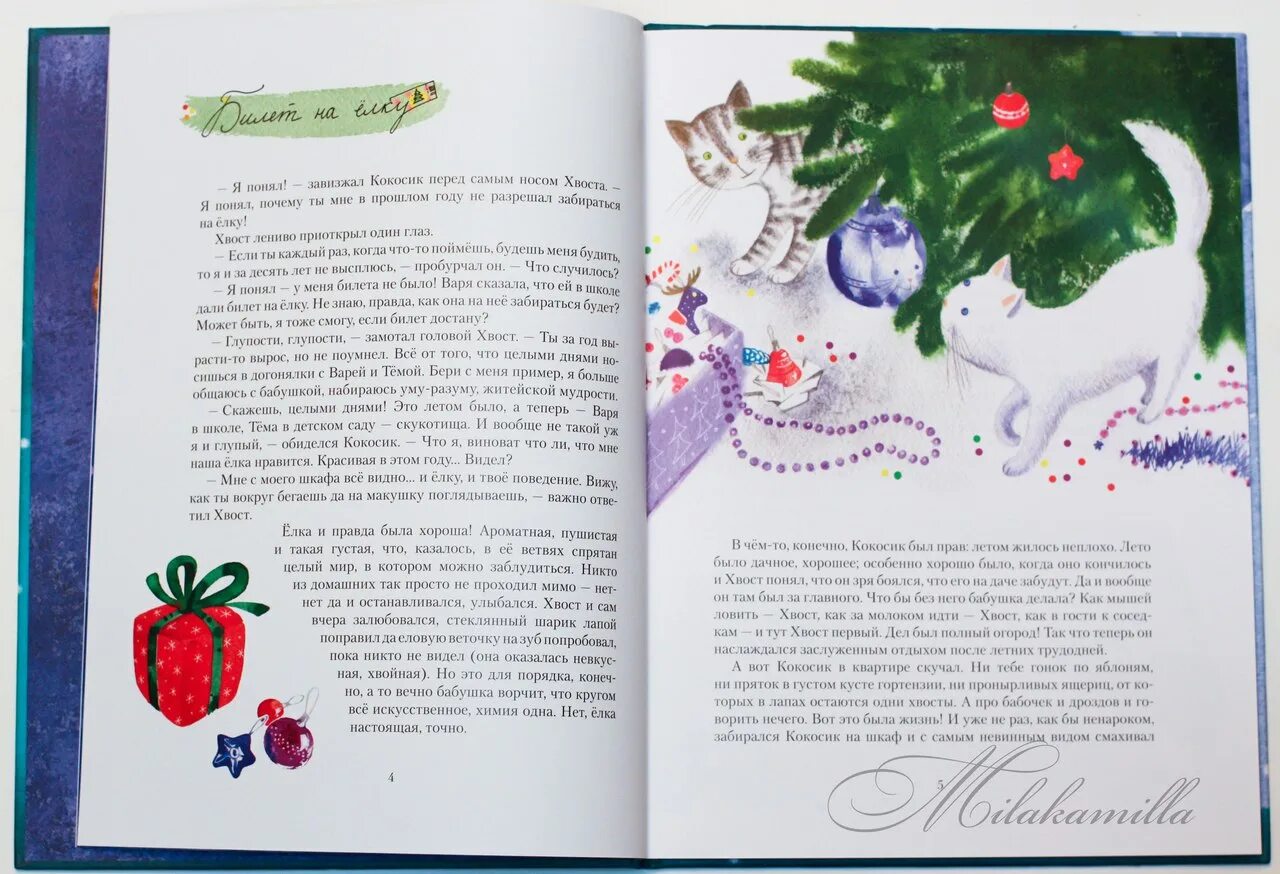 Билет на ёлку
— Я понял! — завизжал Кокосик перед самым носом Хвоста. —
Я понял, почему ты мне в прошлом году не разрешал забираться
на ёлку!
Хвост лениво приоткрыл один глаз.
— Если ты каждый раз, когда что-то поймёшь, будешь меня будить,
то я и за десять лет не высплюсь, — пробурчал он. — Что случилось?
— Я понял — у меня билета не было! Варя сказала, что ей в школе
дали билет на ёлку. Не знаю, правда, как она на неё забираться будет?
Может быть, я тоже смогу, если билет достану?
— Глупости, глупости, — замотал головой Хвост. — Ты за год вы-
расти-то вырос, но не поумнел. Всё от того, что целыми днями но-
сишься в догонялки с Варей и Тёмой. Бери с меня пример, я больше
общаюсь с бабушкой, набираюсь уму-разуму, житейской мудрости.
— Скажешь, целыми днями! Это летом было, а теперь — Варя
в школе, Тёма в детском саду — скукотища. И вообще не такой уж
я и глупый, — обиделся Кокосик. — Что я, виноват что ли, что мне
наша ёлка нравится. Красивая в этом году... Видел?
— Мне с моего шкафа всё видно... и ёлку, и твоё поведение. Вижу,
как ты вокруг бегаешь да на макушку поглядываешь, — важно отве-
тил Хвост.
Ёлка и правда была хороша! Ароматная, пушистая
и такая густая, что, казалось, в её ветвях спрятан
целый мир, в котором можно заблудиться. Никто
из домашних так просто не проходил мимо — нет-
нет да и останавливался, улыбался. Хвост и сам
вчера залюбовался, стеклянный шарик лапой
поправил да еловую веточку на зуб попробовал,
пока никто не видел (она оказалась невкус-
ная, хвойная). Но это для порядка, конеч-
но, а то вечно бабушка ворчит, что кругом
всё искусственное, химия одна. Нет, ёлка
настоящая, точно.
4
В чём-то, конечно, Кокосик был прав: летом жилось неплохо. Лето
было дачное, хорошее; особенно хорошо было, когда оно кончилось
и Хвост понял, что он зря боялся, что его на даче забудут. Да и вообще
он там был за главного. Что бы без него бабушка делала? Как мышей
ловить — Хвост, как за молоком идти — Хвост, как в гости к сосед-
кам — и тут Хвост первый. Дел был полный огород! Так что теперь он
наслаждался заслуженным отдыхом после летних трудодней.
А вот Кокосик в квартире скучал. Ни тебе гонок по яблоням,
ни пряток в густом кусте гортензии, ни пронырливых ящериц, от ко-
торых в лапах остаются одни хвосты. А про бабочек и дроздов и го-
ворить нечего. Вот это была жизнь! И уже не раз, как бы ненароком,
забирался Кокосик на шкаф и с самым невинным видом смахивал
5
Milakamilla